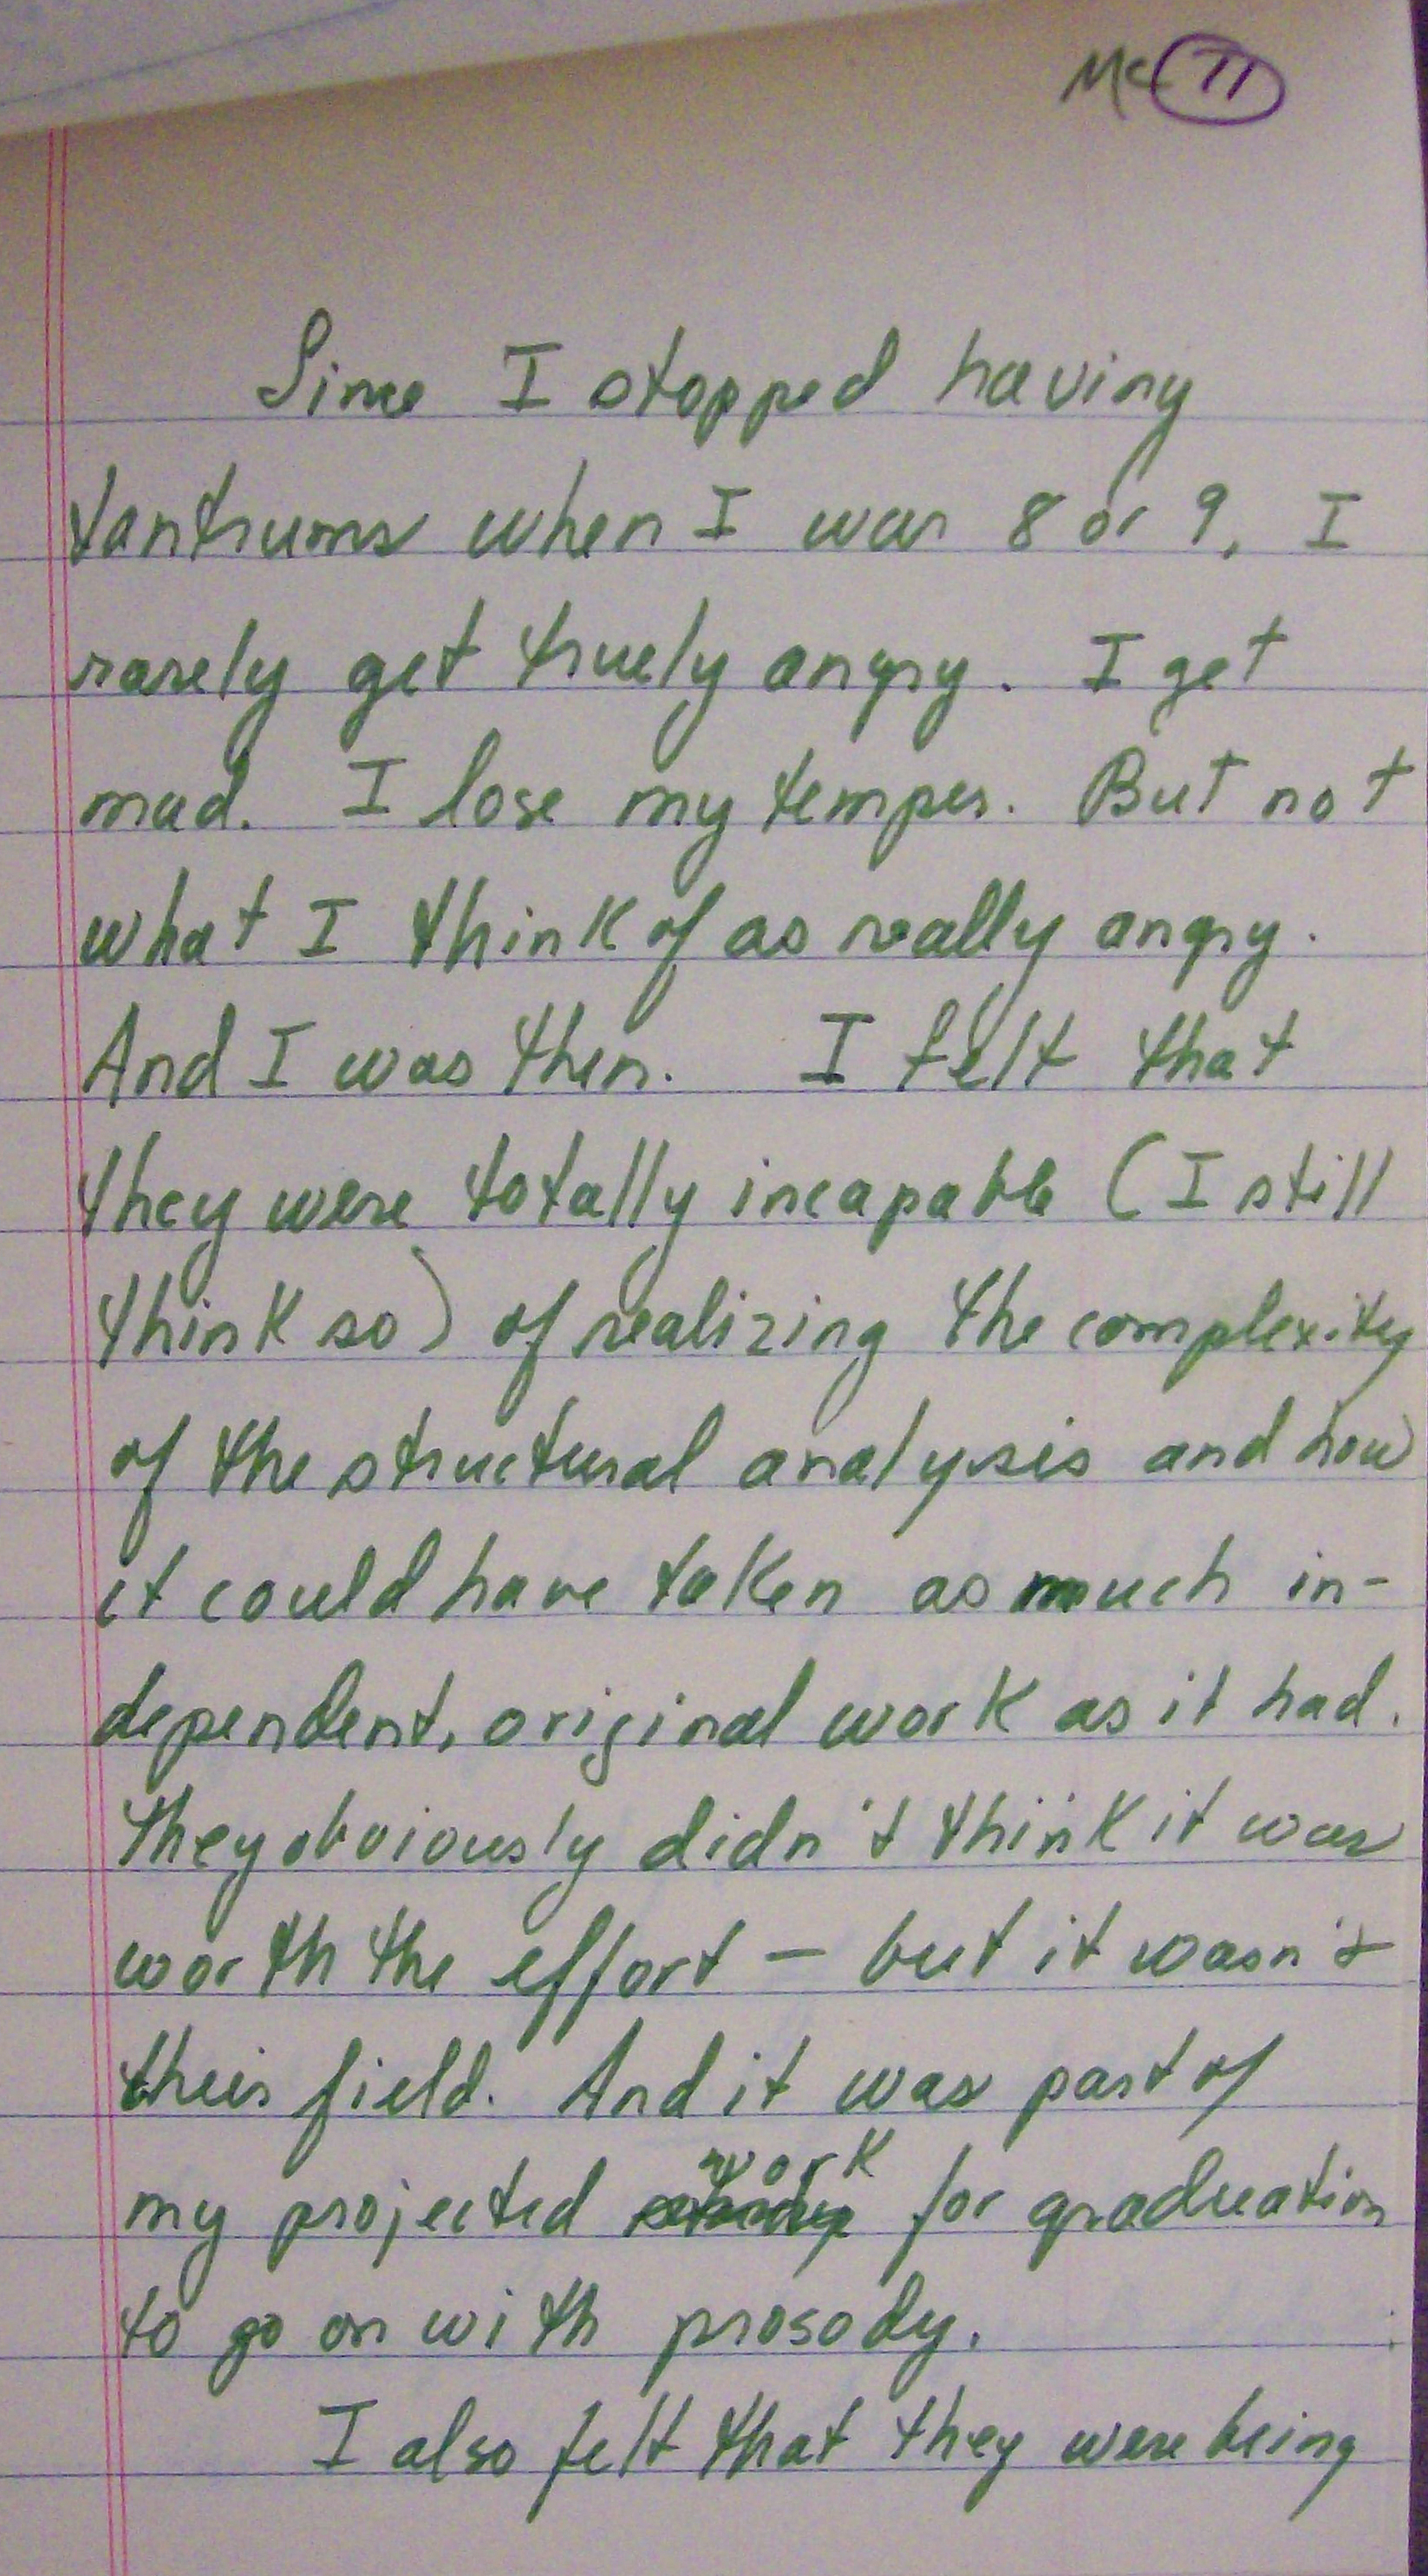 Mc 11
Since I stopped having
tantrums when I was 8 or 9, I
rarely get truely angry. I get
mad. I lose my temper. But not
what I think of as really angry.
And I was then. I felt that
they were totally incapable (I still
think so) of realizing the complexity
of the structural analysis and how
it could have taken as much in-
dependent, original work as it had.
They obviously didn't think it was
worth the effort — but it wasn't
their field. And it was part of
my projected work for graduation
to go on with prosody.
I also felt that they were being